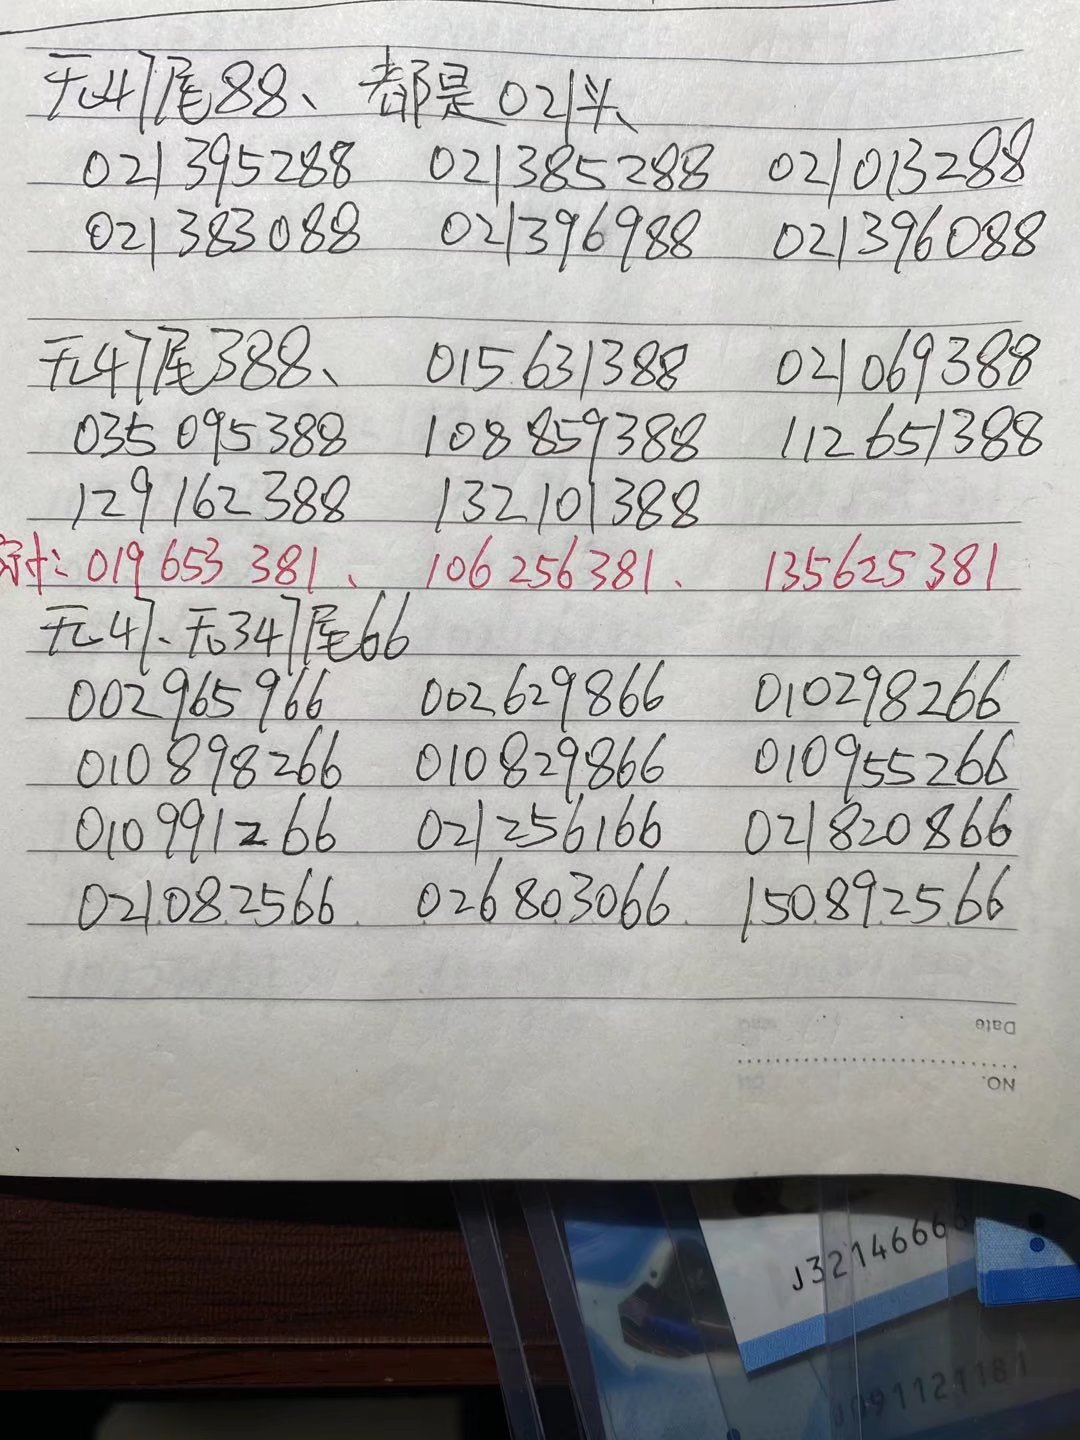 无47尾88、都是021头、
021395288 021385288 021013288
021383088 021396988 021396088
无47尾388、 015631388 021069388
035095388 108859388 112651388
129162388 132101388
019653381、 106256381、 135625381
无47、无347尾66
002965966 002629866 010298266
010898266 010829866 010955266
010991266 021256166 021820866
021082566 026803066 150892566
Date
NO.
J32146666
091121181